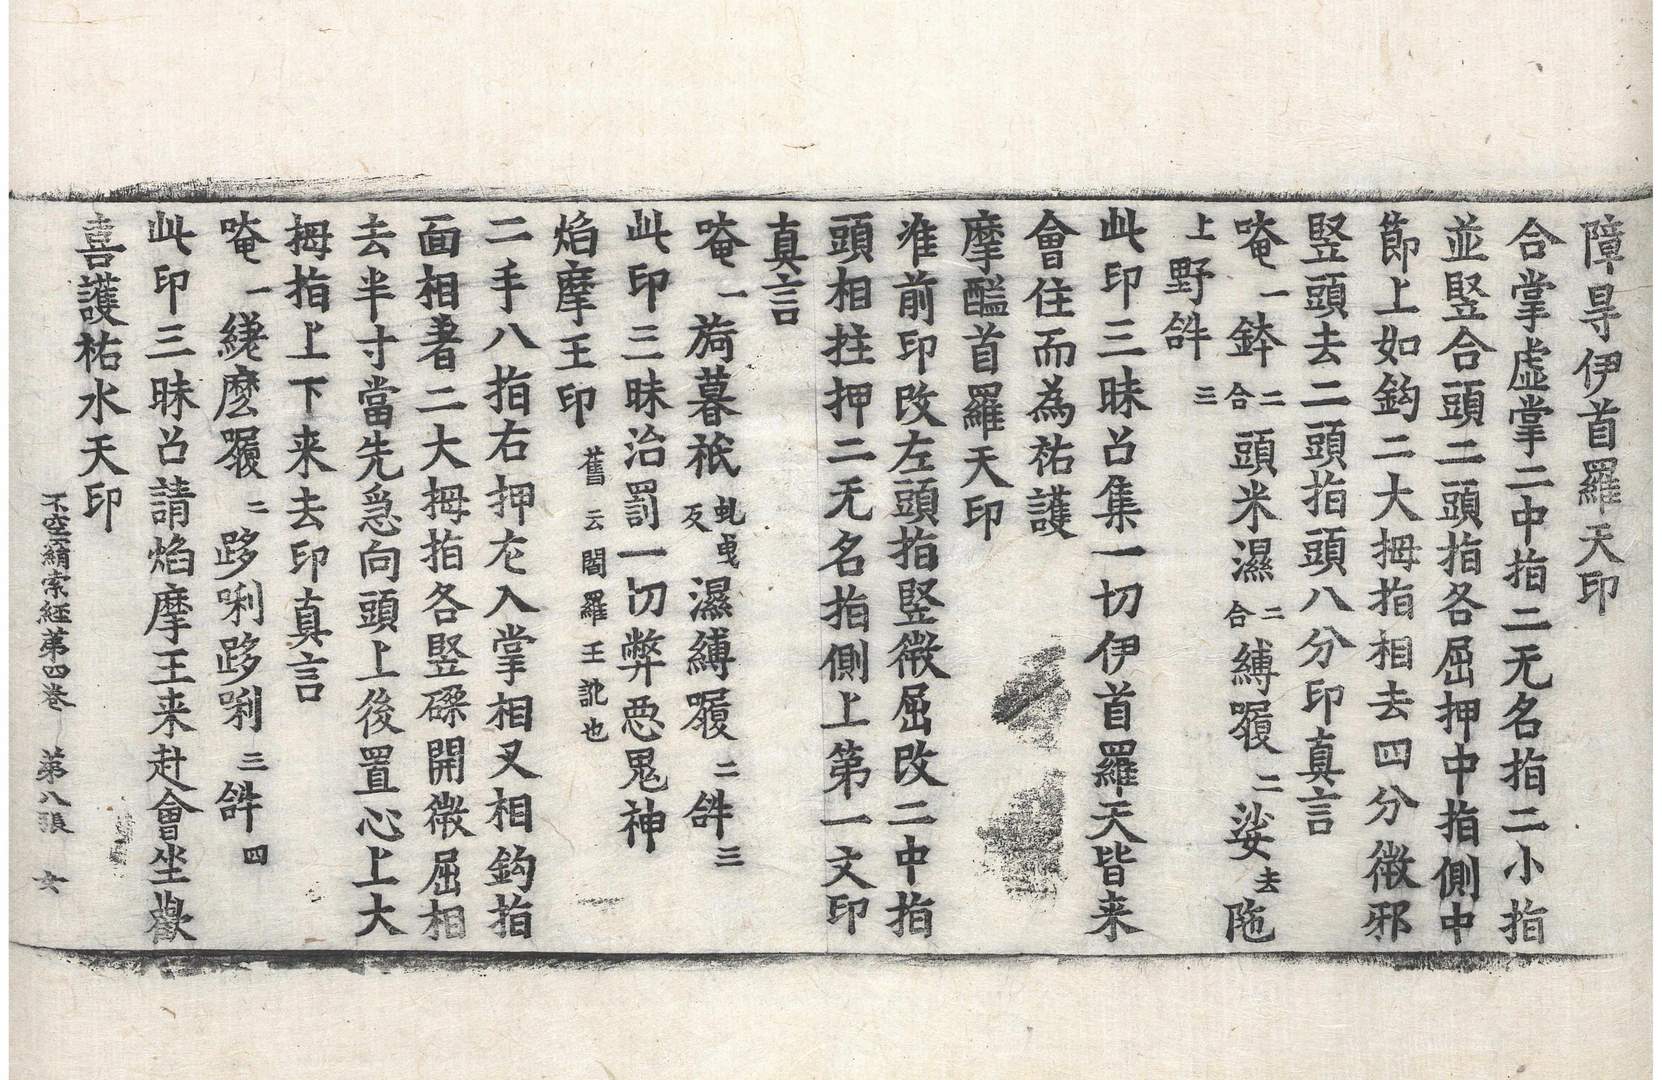 障㝵伊首羅天印
合掌虛掌二中指二无名指二小指
並竪合頭二頭指各屈押中指側中
節上如鈎二大拇指相去四分微邪
竪頭去二頭指頭八分印真言
唵一鉢二合頭米濕二合縛㘑二娑去陁
上野𤙖三
此印三昧召集一切伊首羅天皆来
會住而為祐護
摩醯首羅天印
准前印改左頭指竪微屈改二中指
頭相拄押二无名指側上第一文印
真言
唵一旖暮祇虬曳反濕縛㘑二𤙖三
此印三昧治罰一切弊惡鬼神
焰摩王印舊云閻羅王訛也
二手八指右押左入掌相叉相鈎指
面相著二大拇指各竪磔開微屈相
去半寸當先急向頭上後置心上大
拇指上下来去印真言
唵一繾麽㘑二跢唎跢唎三𤙖四
此印三昧召請焰摩王来赴會坐歡
喜護祐水天印
不空羂索經第四卷 第八張 女